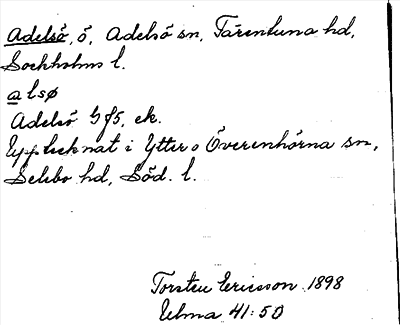 Adelsö, ö, Adelsö sn, Färentuna hd,
Stockholms l.
alsø
Adelsö Gf5, ek.
Upptecknat i Ytter o Överenhörna sn,
Selebo hd, Söd. l.
Torsten Ericsson 1898
Ulma 41:50